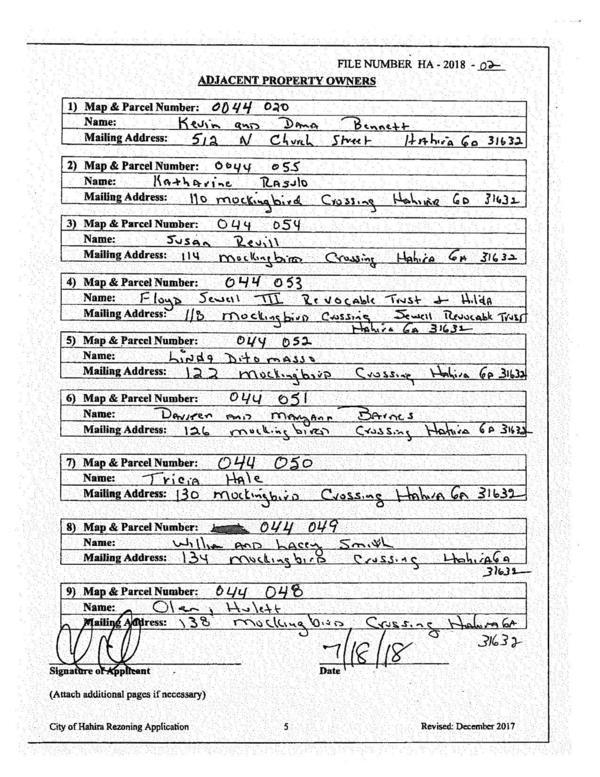 FILE NUMBER HA - 2018 - 02
ADJACENT PROPERTY OWNERS
1) Map & Parcel Number: 0044 020
Name: Kevin and Dana Bennett
Mailing Address: 512 N Church Street Hahira Ga 31632
2) Map & Parcel Number: 0044 055
Name: Katharine Rasulo
Mailing Address: 110 mockingbird Crossing Hahira GA 31632
3) Map & Parcel Number: 044 054
Name: Susan Revill
Mailing Address: 114 mockingbird Crossing Hahira GA 31632
4) Map & Parcel Number: 044 053
Name: Floyd Sewell III Revocable Trust + Hilda
Mailing Address: 118 mockingbird Crossing Sewell Revocable Trust
Hahira GA 31632
5) Map & Parcel Number: 044 052
Name: Linda Ditomasso
Mailing Address: 122 mockingbird Crossing Hahira GA 31632
6) Map & Parcel Number: 044 051
Name: Darren and Maryann Barnes
Mailing Address: 126 mockingbird Crossing Hahira GA 31632
7) Map & Parcel Number: 044 050
Name: Tricia Hale
Mailing Address: 130 Mockingbird Crossing Hahira GA 31632
8) Map & Parcel Number: 044 049
Name: William AND Lacey Smith
Mailing Address: 134 mockingbird Crossing Hahira GA
31632
9) Map & Parcel Number: 044 048
Name: Olen, Hulett
Mailing Address: 138 mockingbird Crossing Hahira GA
31632
7/18/18
Signature of Applicant Date
(Attach additional pages if necessary)
City of Hahira Rezoning Application 5 Revised: December 2017